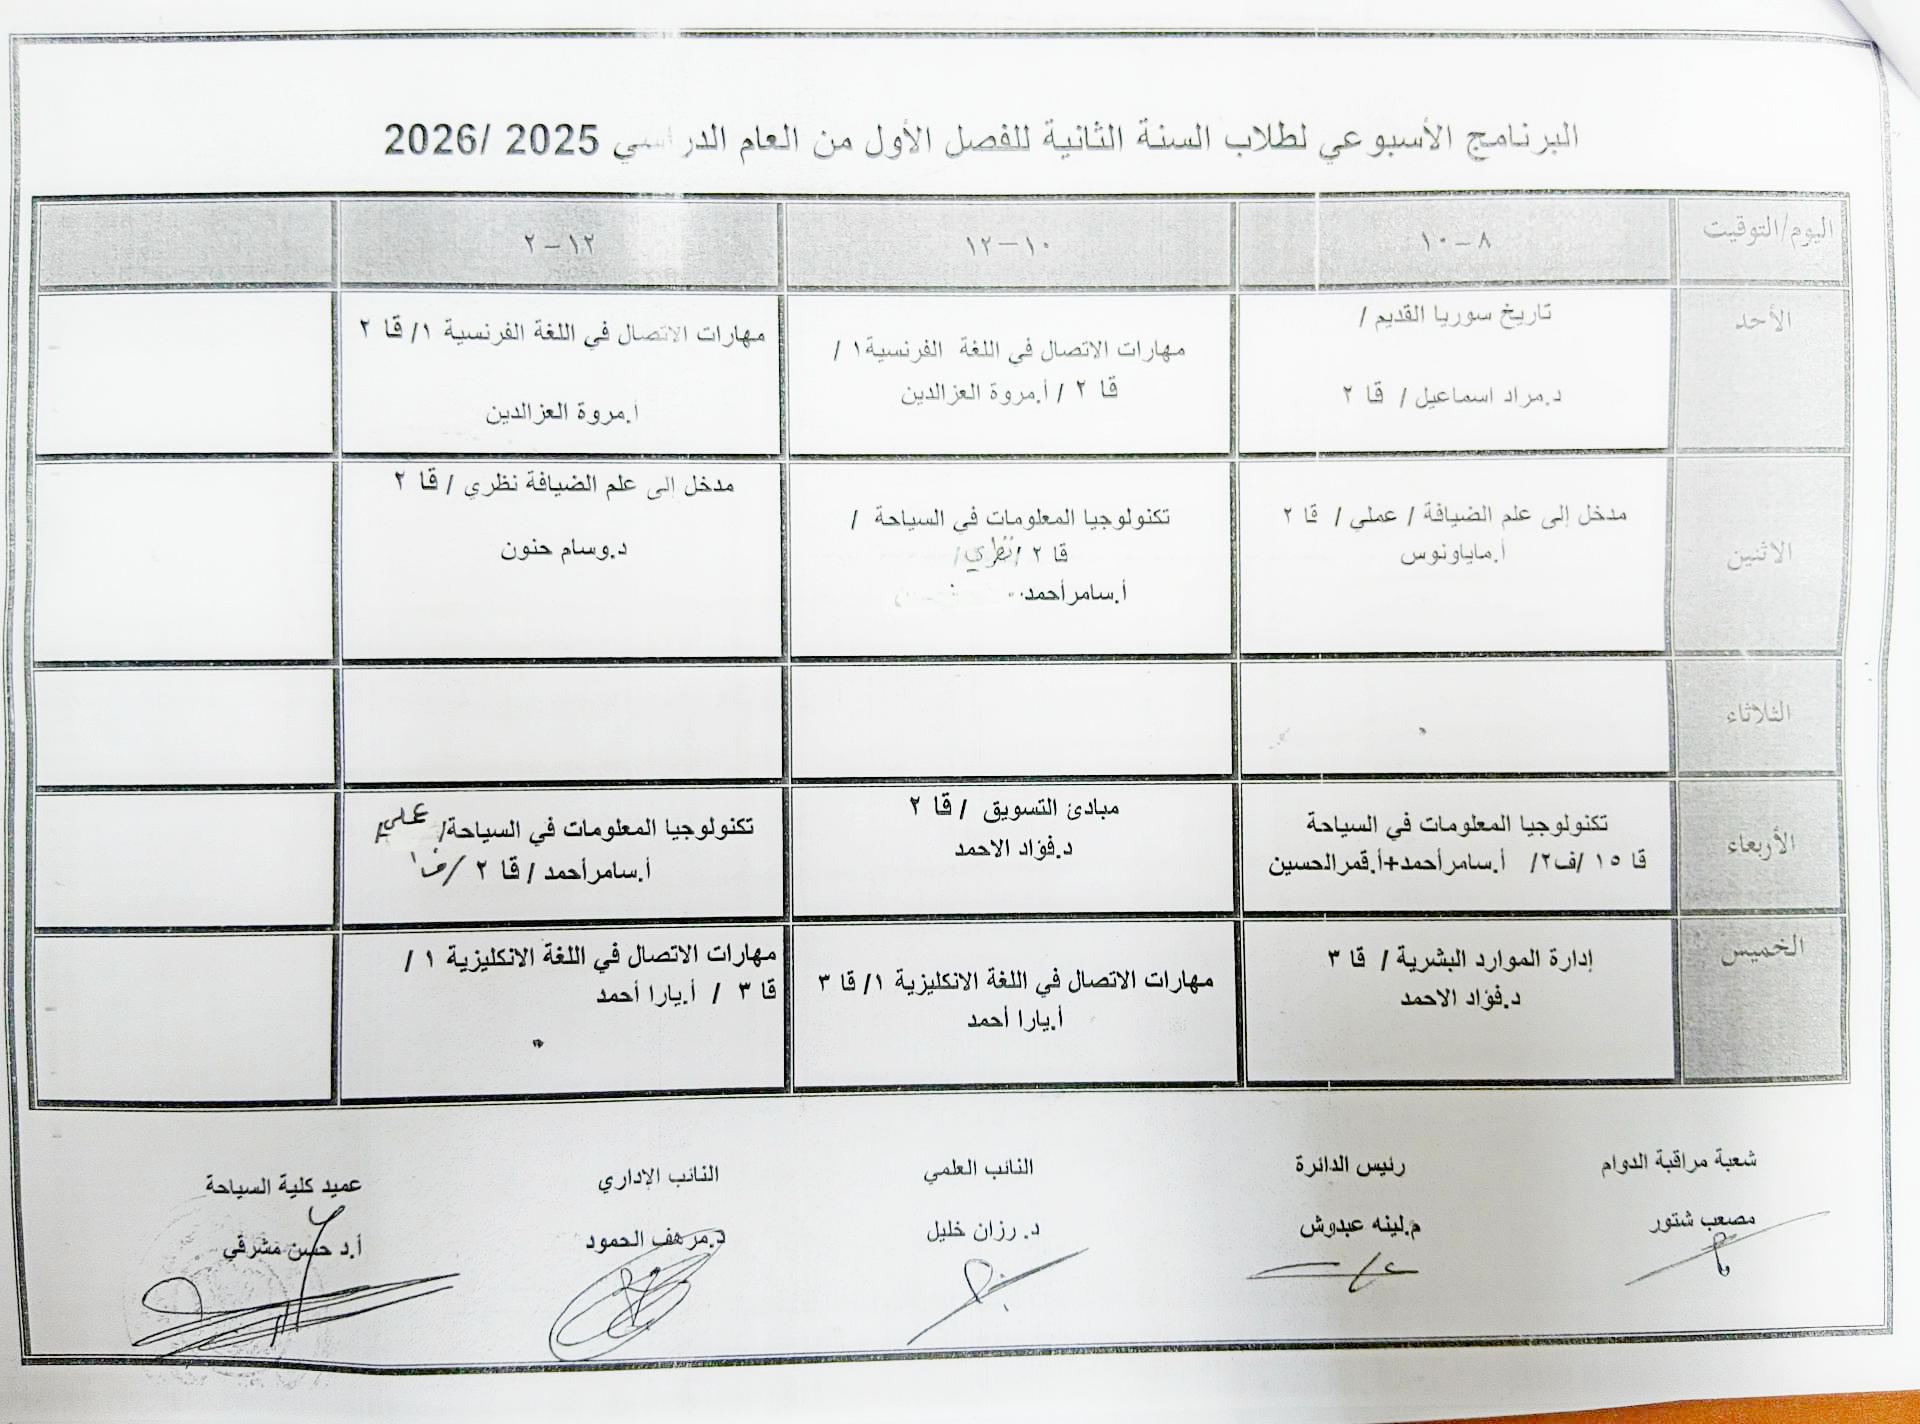 البرنامج الأسبوعي لطلاب السنة الثانية للفصل الأول من العام الدراسي 2025 /2026
اليوم/التوقيت
٨ – ١٠
١٠ – ١٢
١٢ – ٢
الأحد
تاريخ سوريا القديم /
د.مراد اسماعيل / قا ٢
مهارات الاتصال في اللغة الفرنسية١ /
قا ٢ / أ.مروة العزالدين
مهارات الاتصال في اللغة الفرنسية ١/ قا ٢
أ.مروة العزالدين
الاثنين
مدخل إلى علم الضيافة / عملي / قا ٢
أ.ماياونوس
تكنولوجيا المعلومات في السياحة /
قا ٢ /نظري/
أ.سامرأحمد
مدخل إلى علم الضيافة نظري / قا ٢
د.وسام حنون
الثلاثاء
الأربعاء
تكنولوجيا المعلومات في السياحة
قا ١٥ /ف٢/ أ.سامرأحمد+أ.قمرالحسين
مبادئ التسويق / قا ٢
د.فؤاد الاحمد
تكنولوجيا المعلومات في السياحة/ عملي/
أ.سامرأحمد / قا ٢ /ف١
الخميس
إدارة الموارد البشرية / قا ٣
د.فؤاد الاحمد
مهارات الاتصال في اللغة الانكليزية ١/ قا ٣
أ.يارا أحمد
مهارات الاتصال في اللغة الانكليزية ١ /
قا ٣ / أ.يارا أحمد
شعبة مراقبة الدوام
مصعب شتور
رئيس الدائرة
م.لينه عبدوش
النائب العلمي
د. رزان خليل
النائب الإداري
د.مرهف الحمود
عميد كلية السياحة
أ.د حسن مشرقي